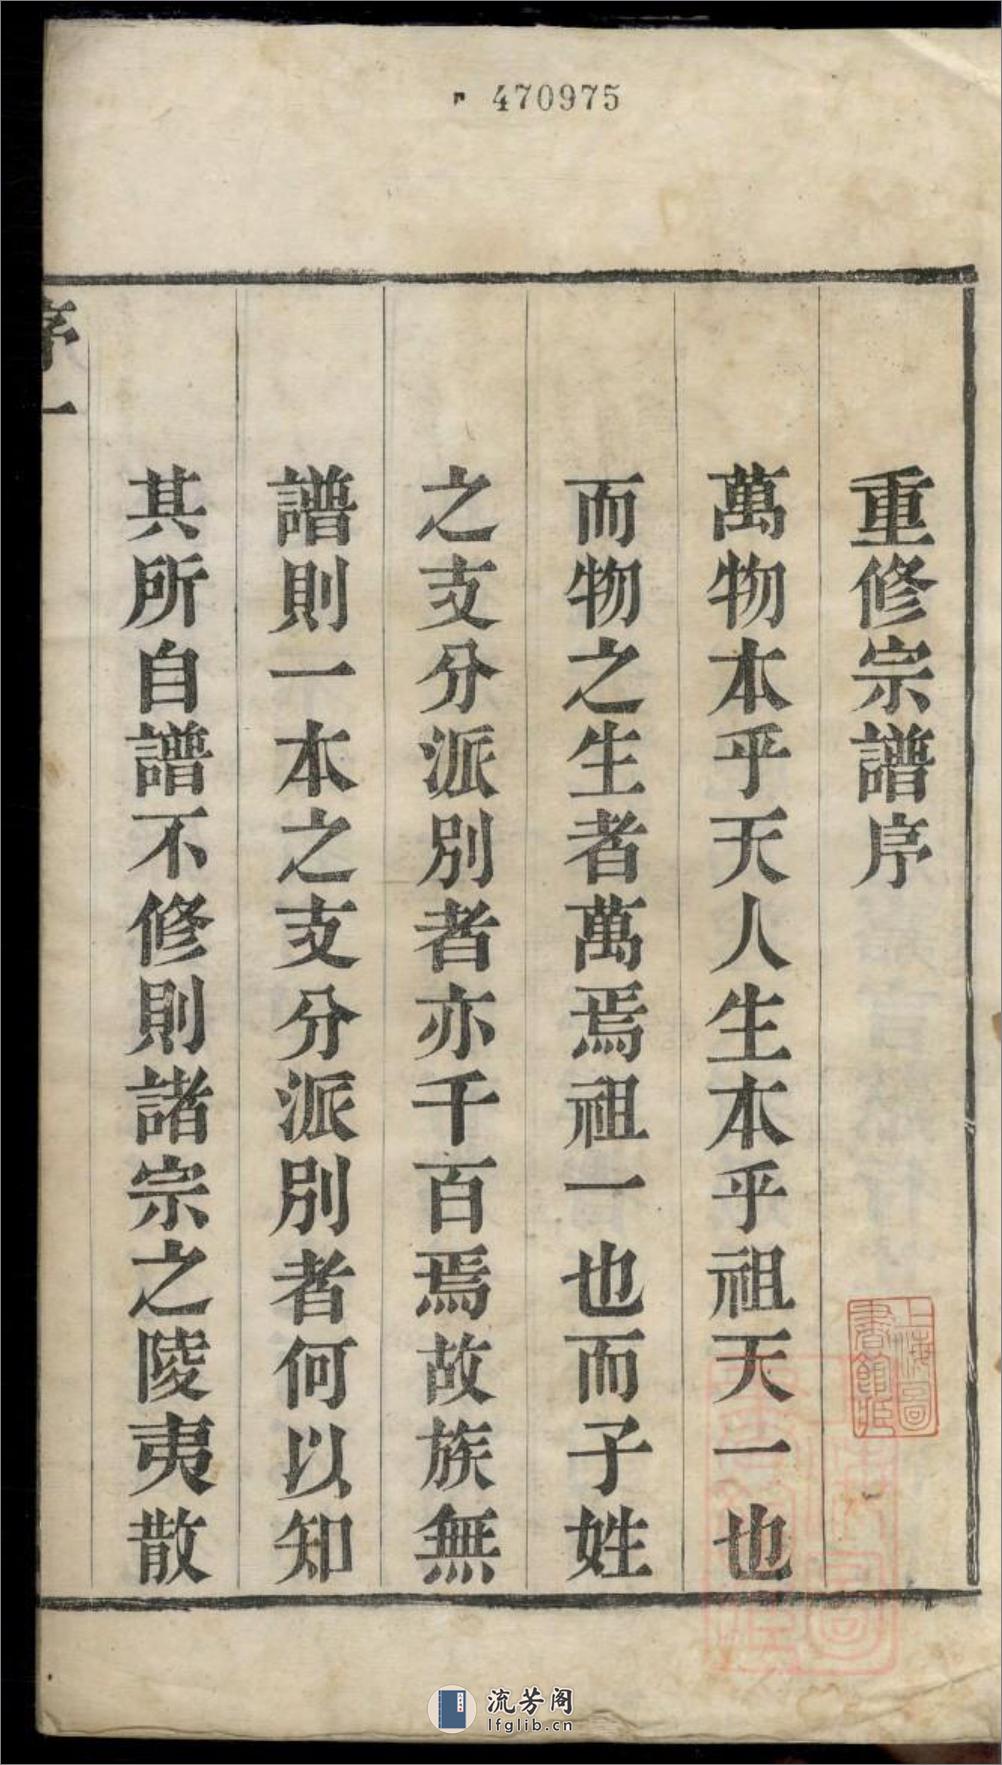 470975
重修宗譜序
萬物本乎天人生本乎祖天一也
而物之生者萬焉祖一也而子姓
之支分派別者亦千百焉故族無
譜則一本之支分派別者何以知
其所自譜不修則諸宗之陵夷散
序一
上海圖
書館藏
流芳阁
lfglib.cn